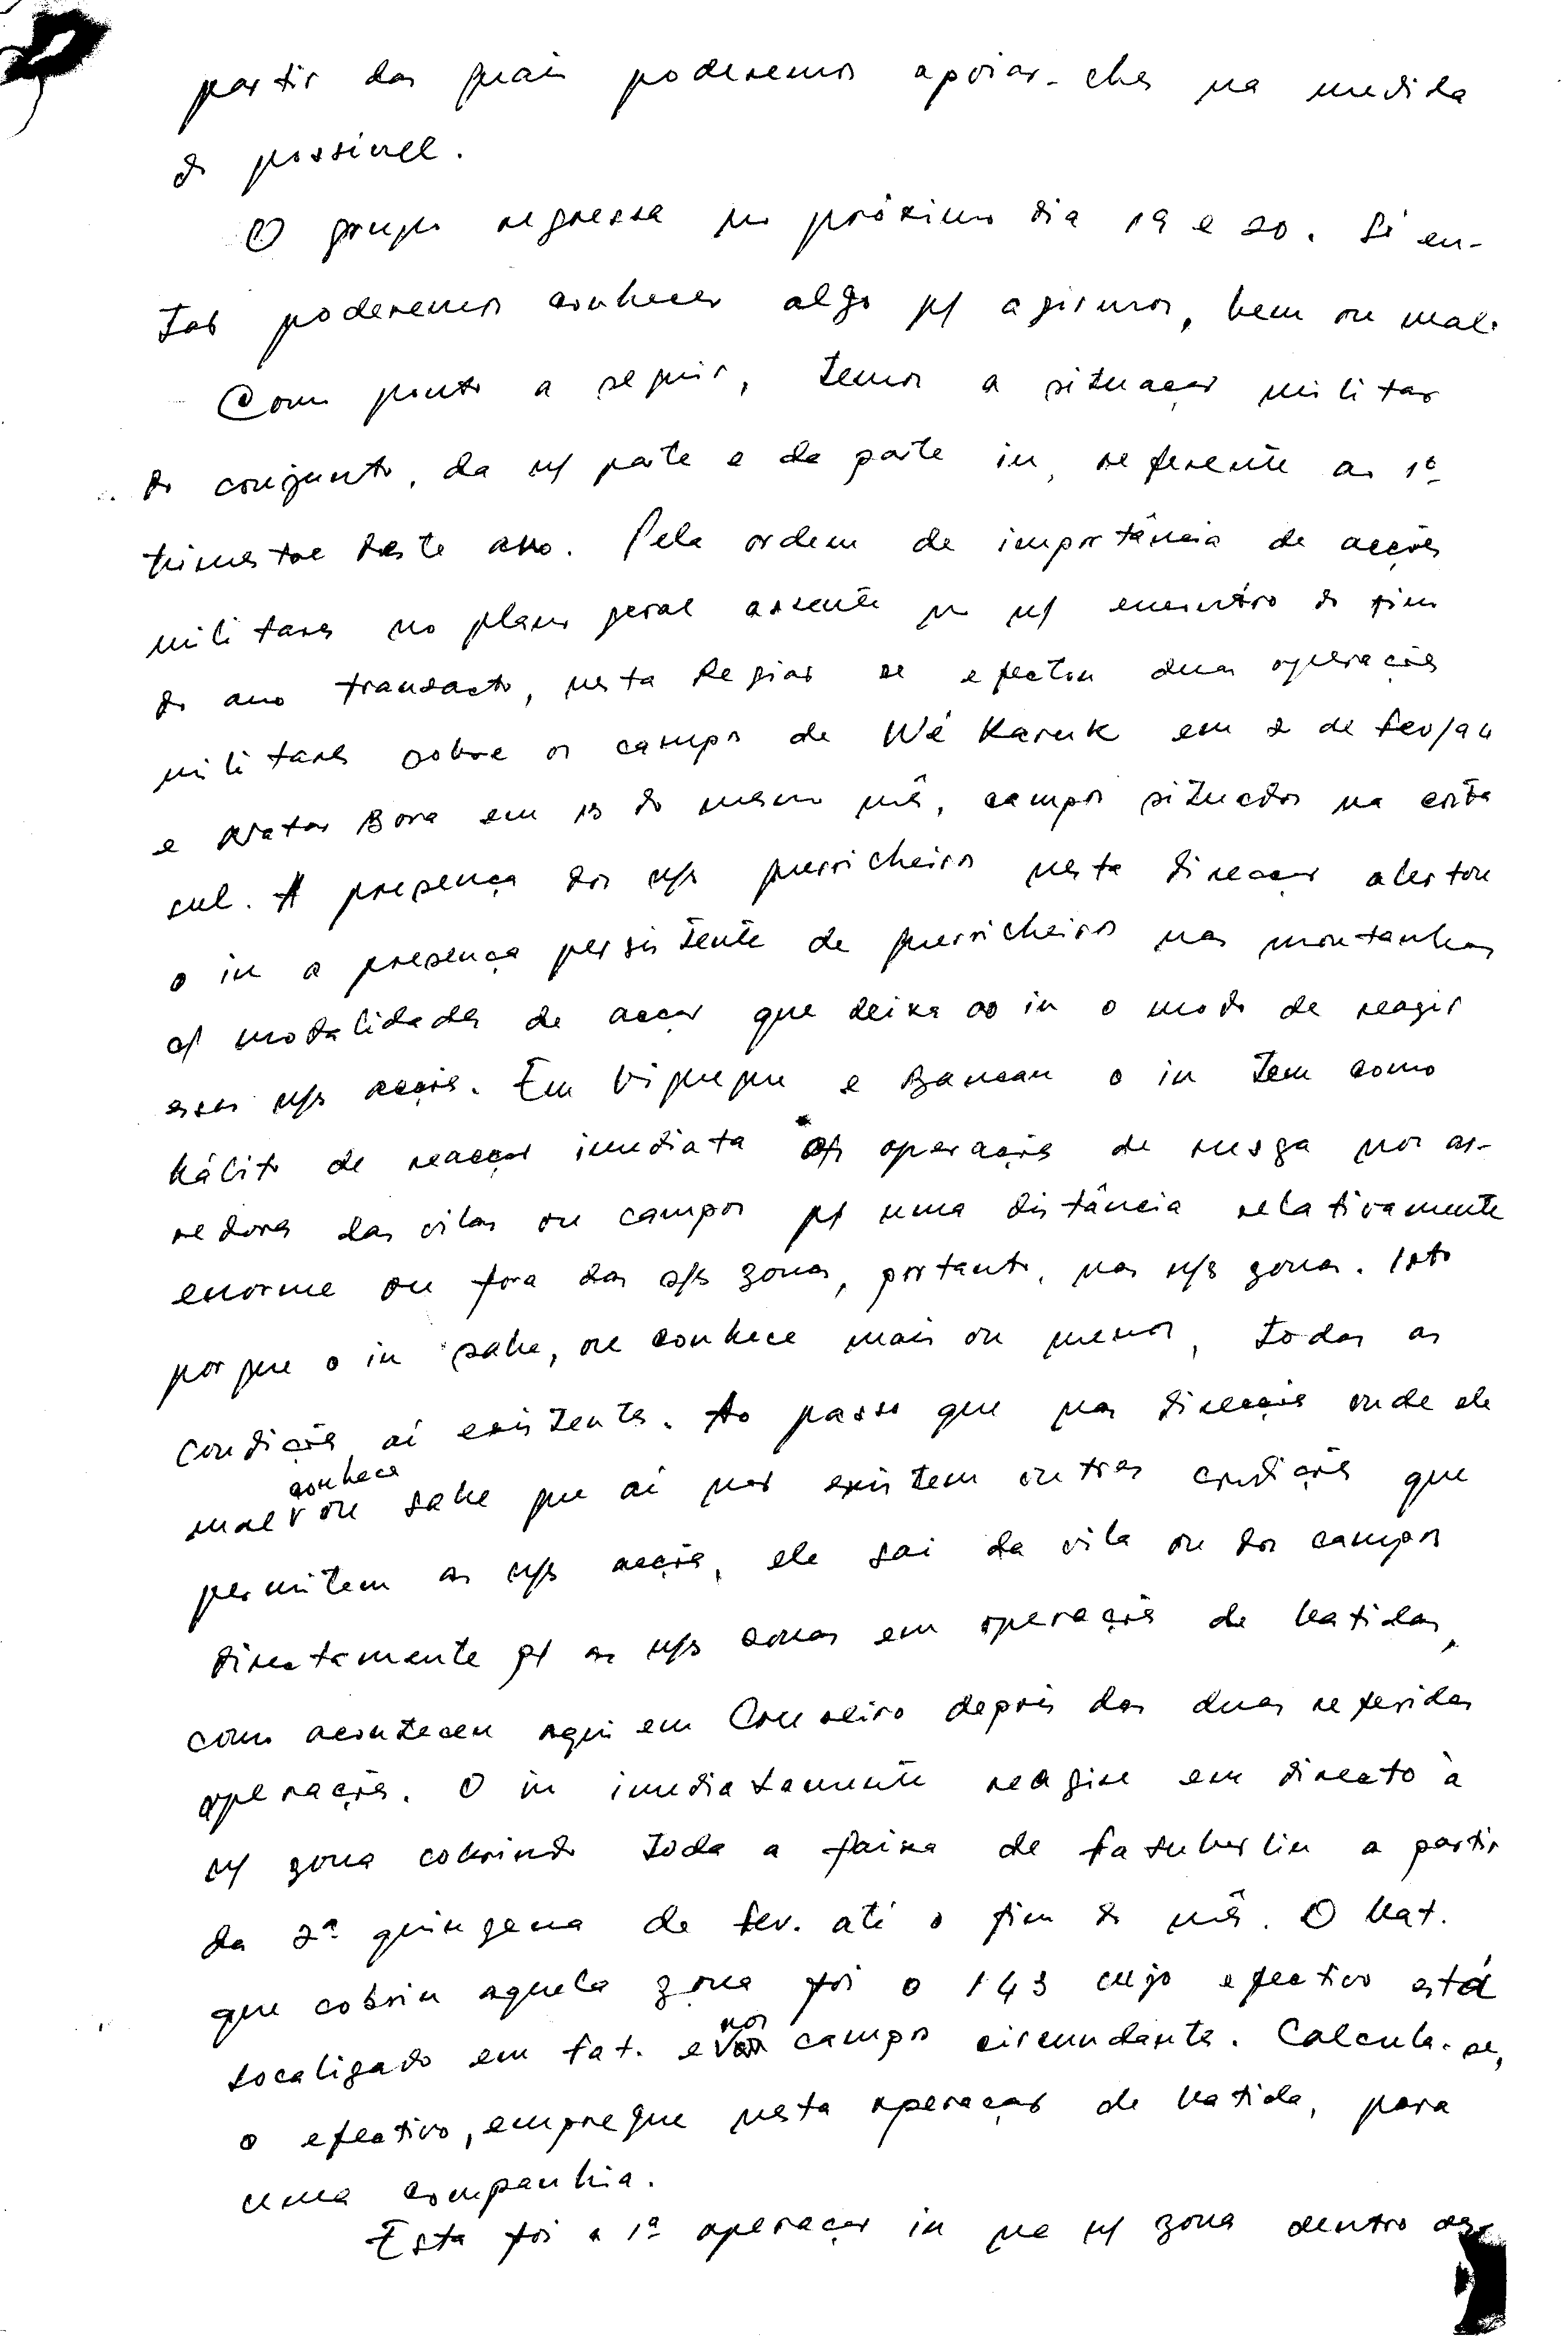 partir das quais poderemos apoiar-lhes na medida
do possivel.
O grupo regressa no próximo dia 19 e 20. Só en-
tão poderemos conhecer algo p/ agirmos, bem ou mal.
Como ponto a seguir, temos a situação militar
do conjunto, da n/ parte e da parte in, referente ao 1º
trimestre deste ano. Pela ordem de importância de acções
militares no plano geral assente no n/ encontro do fim
do ano transacto, nesta Região se efectou duas operações
militares sobre os campos de Wé Karuk em 2 de fev/94
e Natar Bora em 13 do mesmo mês, campos situados na costa
sul. A presença dos n/s guerrilheiros nesta direcção alertou
o in a presença persistente de guerrilheiros nas montanhas
c/ modalidades de acção que deixa ao in o modo de reagir
essas n/s acções. Em Viqueque e Baucau o in tem como
hábito de reacção imediata operações de rusga nos ar-
redores das vilas ou campos p/ uma distância relativamente
enorme ou fora das s/s zonas, portanto, nas n/s zonas. Isto
porque o in sabe, ou conhece mais ou menos, todas as
condições aí existentes. Ao passo que nas direcções onde ele
conhece
mal v ou sabe que aí não existem outras condições que
permitem as n/s acções, ele sai da vila ou dos campos
directamente p/ as n/s zonas em operações de batidas,
como aconteceu aqui em Cruzeiro depois das duas referidas
operações. O in imediatamente reagiu em directo à
n/ zona cobrindo toda a faixa de Fatuberliu a partir
da 2ª quinzena de fev. até o fim do mês. O bat.
que cobriu aquela zona foi o 143 cujo efectivo está
localizado em Fat. e
nos
campos circundantes. Calcula-se,
o efectivo, empregue nesta operação de batida, para
uma companhia.
Esta foi a 1ª operação in na n/ zona dentro